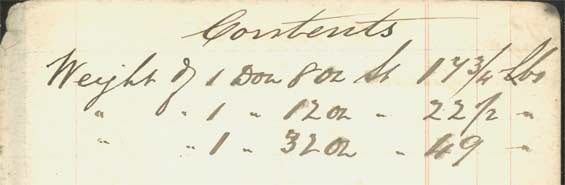 Contents
Weight of 1 Doz 8 oz St 17 3/4 lbs
" " 1 " 12 oz " 22 1/2 "
" " 1 " 32 oz " 49 "